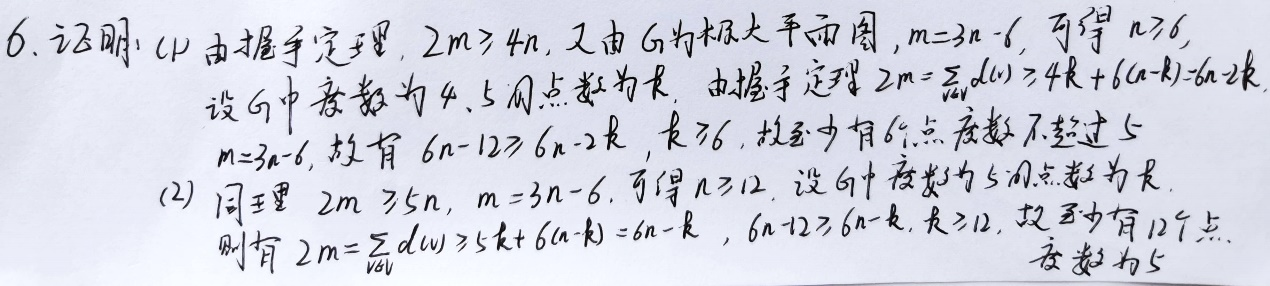 6. 证明: (1) 由握手定理, 2m≥4n, 又由G为极大平面图, m=3n-6, 可得 n≥6,
设G中度数为4、5的点数为k. 由握手定理 2m=∑_{v∈V}d(v)≥4k+6(n-k)=6n-2k,
m=3n-6, 故有 6n-12≥6n-2k, k≥6, 故至少有6个点度数不超过5
(2) 同理 2m≥5n, m=3n-6. 可得 n≥12. 设G中度数为5的点数为k.
则有 2m=∑_{v∈V}d(v)≥5k+6(n-k)=6n-k, 6n-12≥6n-k. k≥12, 故至少有12个点
度数为5